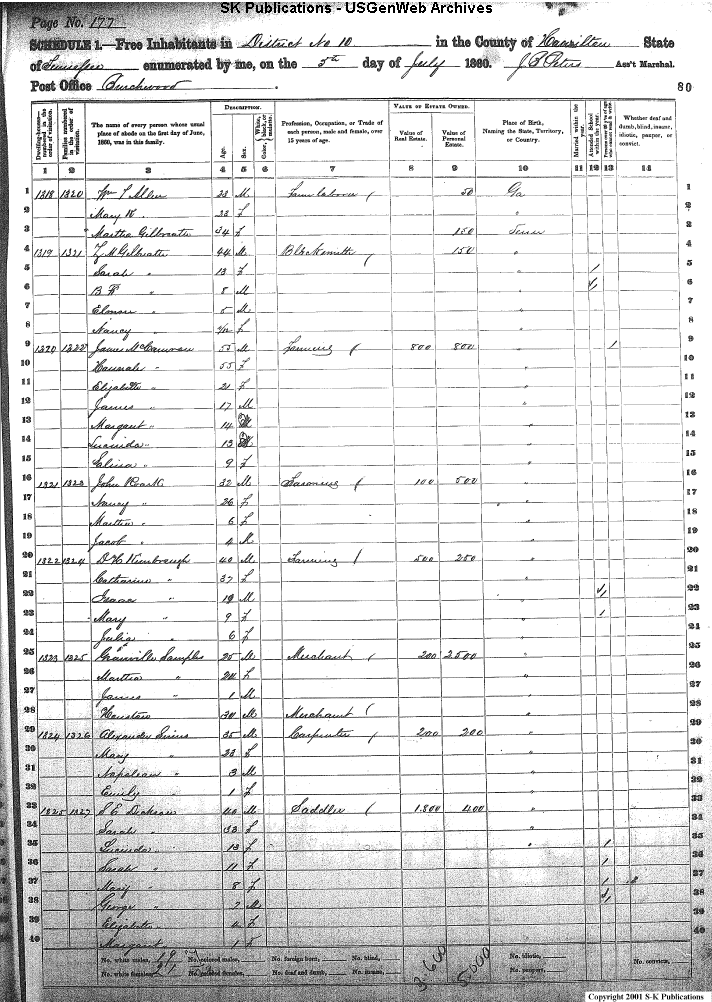 SK Publications - USGenWeb Archives
Page No. 177
SCHEDULE 1.—Free Inhabitants in District No 10 in the County of Hamilton State
of Tennessee enumerated by me, on the 5th day of July 1860. J B Peters Ass't Marshal.
Post Office Birchwood 80
Dwelling-houses—numbered in the order of visitation.
Families numbered in the order of visitation.
The name of every person whose usual place of abode on the first day of June, 1860, was in this family.
DESCRIPTION.
Age.
Sex.
Color, White, black, or mulatto.
Profession, Occupation, or Trade of each person, male and female, over 15 years of age.
VALUE OF ESTATE OWNED.
Value of Real Estate.
Value of Personal Estate.
Place of Birth, Naming the State, Territory, or Country.
Married within the year.
Attended School within the year.
Persons over 20 y'rs of age who cannot read & write.
Whether deaf and dumb, blind, insane, idiotic, pauper, or convict.
1 2 3 4 5 6 7 8 9 10 11 12 13 14
1 1318 1320 Wm L Allen 23 M Farm laborer 50 Ga 1
2 Mary 23 f " 2
3 Martha Gilbreath 34 f 150 Tenn 3
4 1319 1321 Gilbreath 44 M Blacksmith 150 " 4
5 Sarah " 13 f " 1 5
6 B " 8 M " 1 6
7 " 5 M " 7
8 Nancy " f " 8
9 1320 1322 James McCamron 55 M Farming 800 800 " 1 9
10 Hannah " 55 f " 10
11 Elizabeth " 21 f " 11
12 James " 17 M " 12
13 Margaret " 14 13
14 Lucinda " 13 " 14
15 Salina " 9 f " 15
16 1321 1323 John Roark 32 M Farming 100 500 " 16
17 Nancy " 26 f " 17
18 Martha " 6 f " 18
19 Jacob " 4 M " 19
20 1322 1324 D H Kimbrough 40 M Farming 500 250 " 20
21 Catharine " 37 f " 21
22 Isaac " 12 M " 1 22
23 Mary " 9 f " 1 23
24 Julia " 6 f " 24
25 1323 1325 Granville Samples 25 M Merchant 200 2500 " 25
26 Martha " f " 26
27 James " 1 M " 27
28 Houston 30 M Merchant " 28
29 1324 1326 Alexander 35 M Carpenter 200 200 " 29
30 Mary " 23 f " 30
31 Napolean " 3 M " 31
32 Emily " 1 f " 32
33 1325 1327 S E Dickson 40 M Saddler 1,800 400 " 33
34 Sarah " 33 f " 34
35 Lucinda " 13 f " 1 35
36 Sarah " 11 f 1 36
37 Mary " 8 f 1 37
38 George " 7 M 1 38
39 Elizabeth " f 39
40 Margaret " 1 f 40
No. white males, 19 No. colored males, No. foreign born, No. blind, No. idiotic, No. convicts,
No. white females, 21 No. colored females, No. deaf and dumb, No. insane, No. paupers,
3,600 5,000
Copyright 2001 S-K Publications